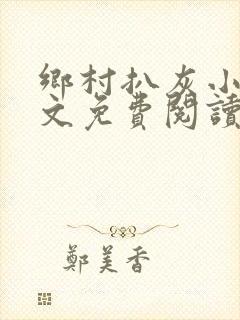 鄉村扒灰小
文免費閱讀
鄭美香